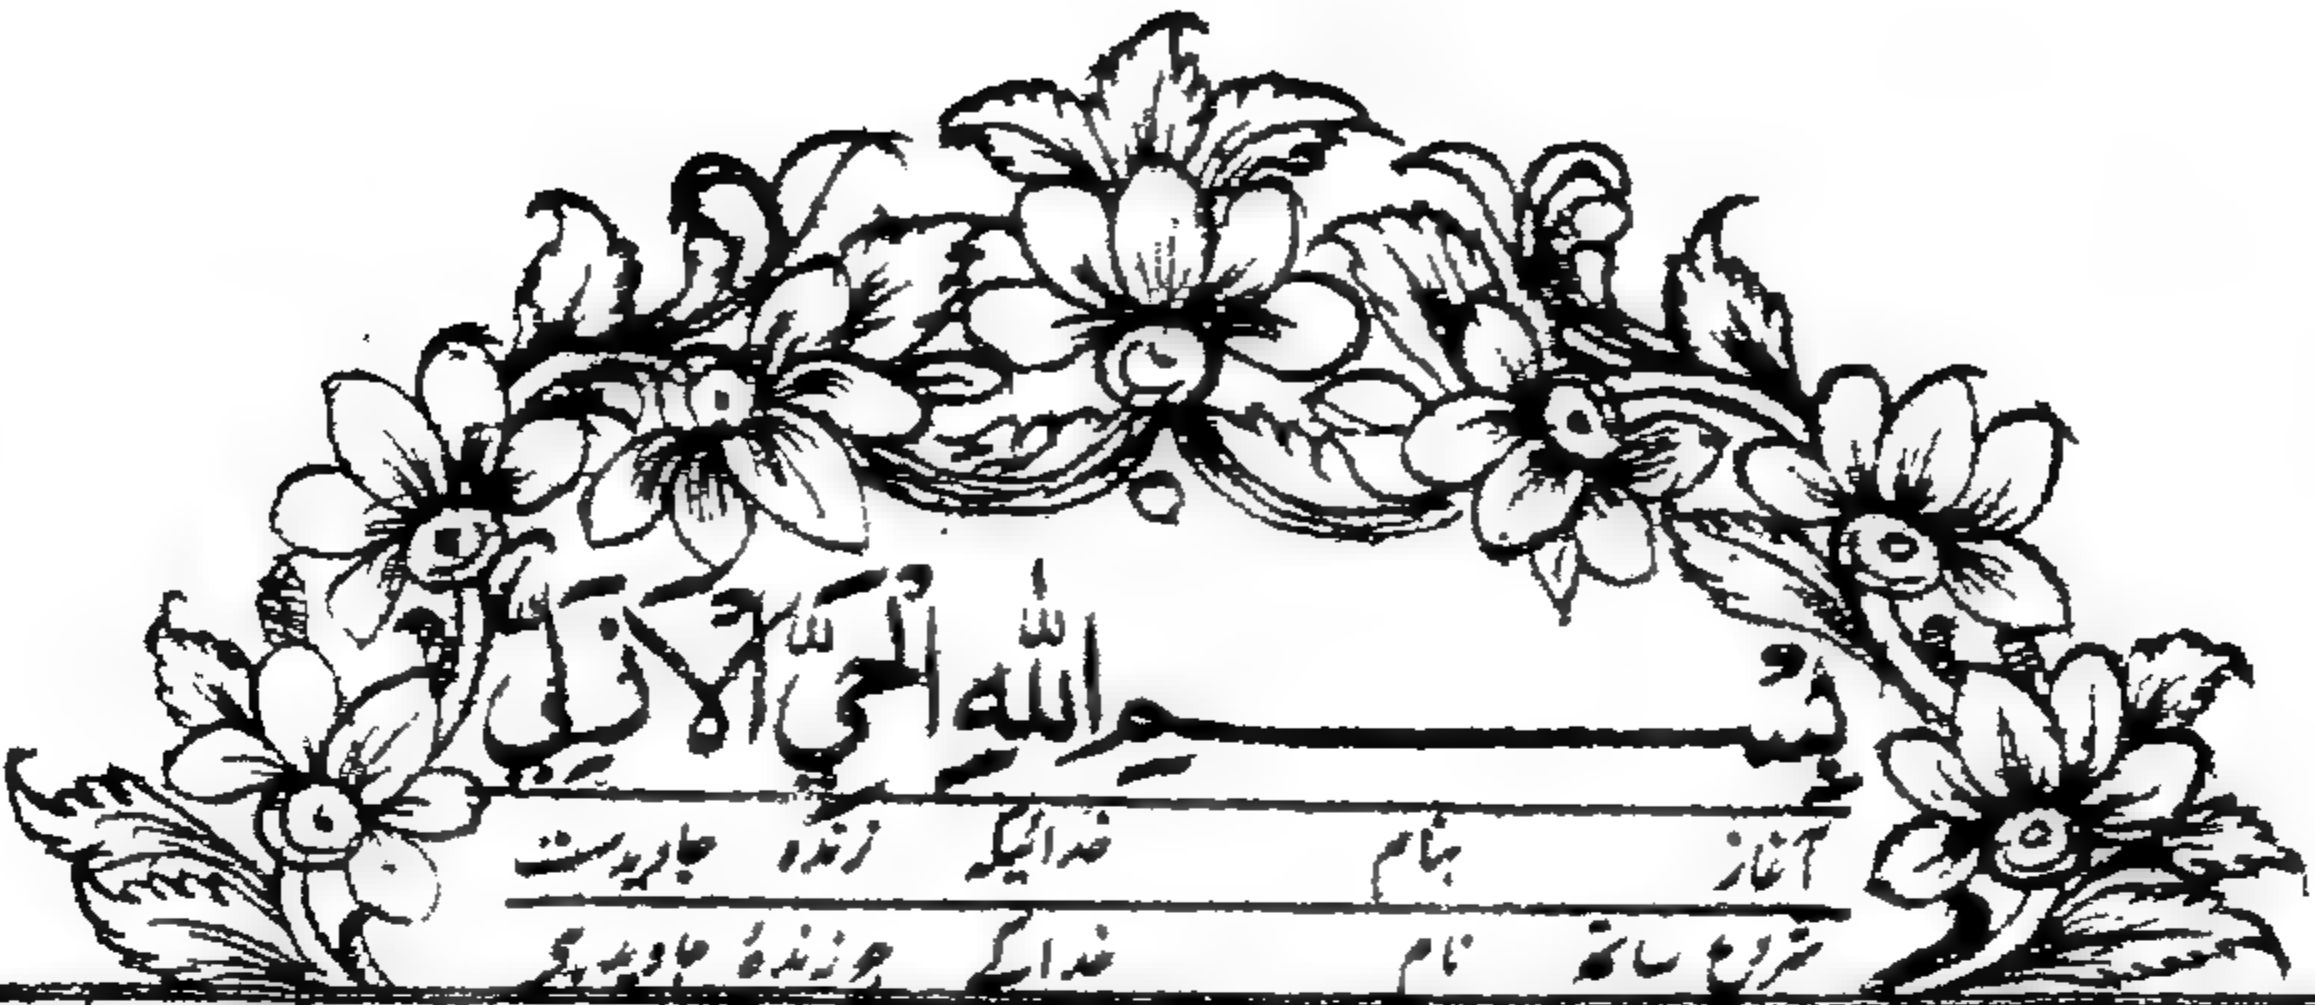 بِسْمِ اللّٰهِ الْحَيِّ الْاَزَلِيِّ
آغاز بنام خدائیکہ زندہ جاویدست
شروع ساتھ نام خدا کے جو زندۂ جاوید ہے